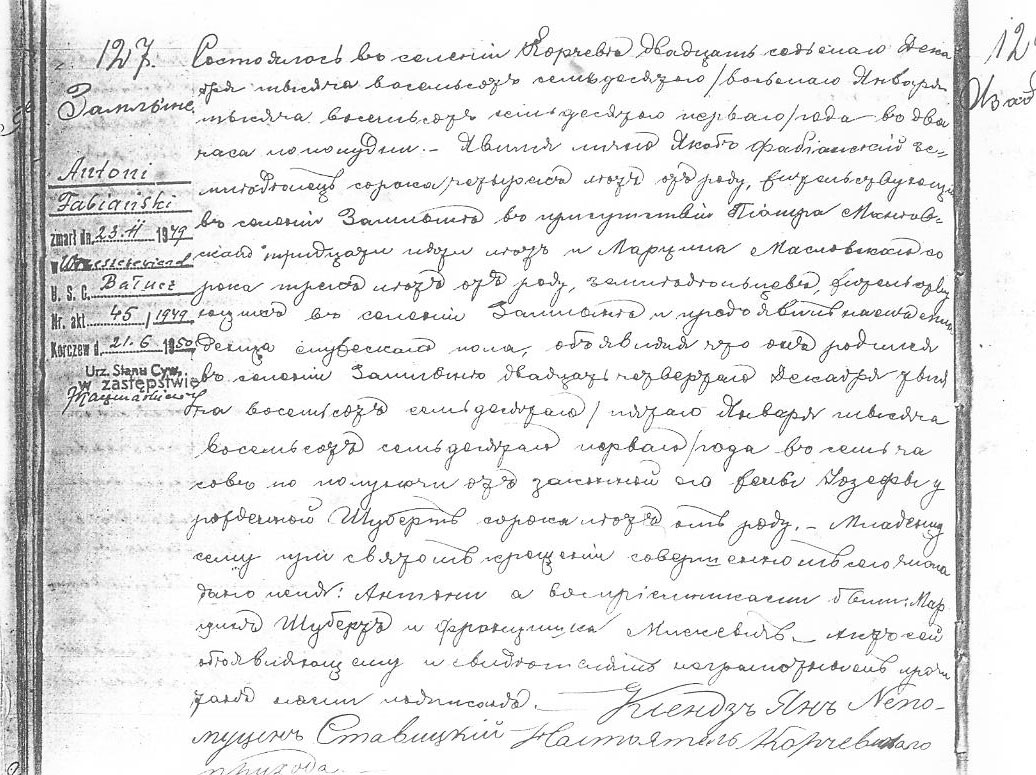 127.
Замлыне
Antoni
Fabiański
zmarł dn. 23.II 1949
w
U. S. C. Bałucz
Nr. akt. 45 / 1949
Korczew d. 21.6 1950
Urz. Stanu Cyw.
w zastępstwie
Состоялось въ селеніи Корчевѣ двадцать седьмаго Дека
бря тысяча восемьсотъ семьдесятаго /восьмаго Января
тысяча восемьсотъ семьдесятъ перваго/ года въ два
часа пополудни. – Явился лично Якобъ Фабіанскій зе-
мледѣлецъ сорока четырехъ лѣтъ отъ роду, жительствующій
въ селеніи Замлынѣ въ присутствіи Піотра
скаго тридцати лѣтъ и Марцина Масловскаго со
рока трехъ лѣтъ отъ роду, земледѣльцевъ, жительству
ющихъ въ селеніи Замлынѣ и предъявилъ намъ мла
денца мужескаго пола, объявляя что онъ родился
въ селеніи Замлынѣ двадцать четвертаго Декабря тыся
ча восемьсотъ семьдесятаго /пятаго Января тысяча
восемьсотъ семьдесятъ перваго/ года въ семь ча
совъ по полуночи отъ законной его жены Іозефы у
рожденной Шубертъ сорока лѣтъ отъ роду. – Младенцу
сему при святомъ крещеніи совершенномъ сего числа
дано имя: Антони а воспріемниками были: Мар
цинъ Шубертъ и Францишка – Актъ сей
объявляющему и свидѣтелямъ неграмотнымъ прочи
танъ нами подписанъ. –
Ксендзъ Янъ Непо-
муценъ Ставицкій Настоятель Корчевскаго
прихода –
12
Изаб